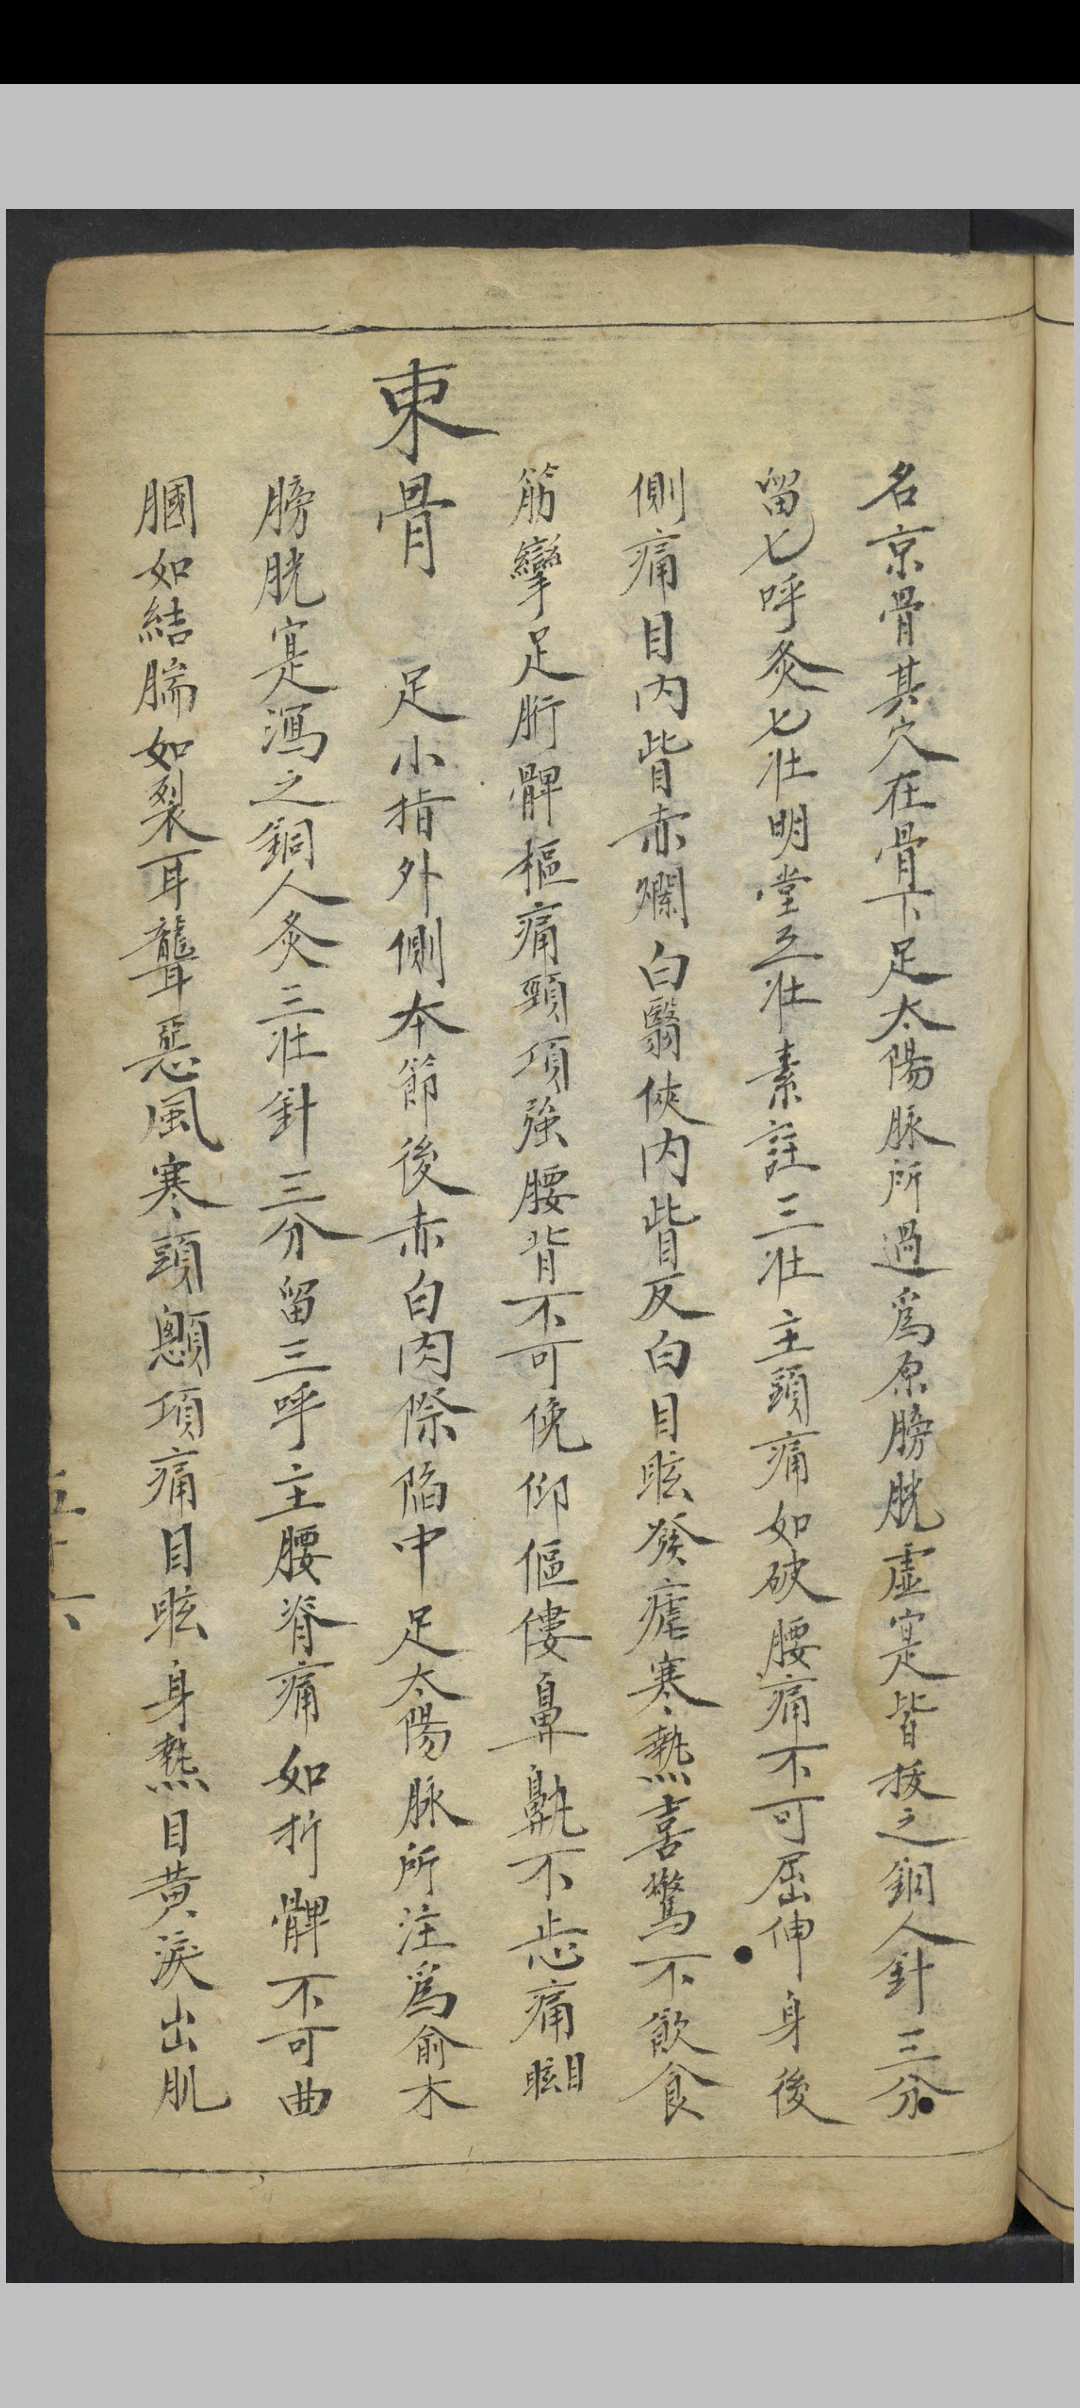 名京骨其穴在骨下足太陽脉所過爲原膀胱虛寔皆拔之銅人針三分
留七呼灸七壯明堂五壯素註三壯主頭痛如破腰痛不可屈伸身後
側痛目内眥赤爛白翳俠内眥反白目眩發瘧寒熱喜驚不飲食
筋攣足胻髀樞痛頸項強腰背不可俛仰傴僂鼻鼽不止痛目眩
束骨 足小指外側本節後赤白肉際陷中足太陽脉所注爲俞木
膀胱寔瀉之銅人灸三壯針三分留三呼主腰脊痛如折髀不可曲
膕如結腨如裂耳聾惡風寒頭顖項痛目眩身熱目黄淚出肌
五十六